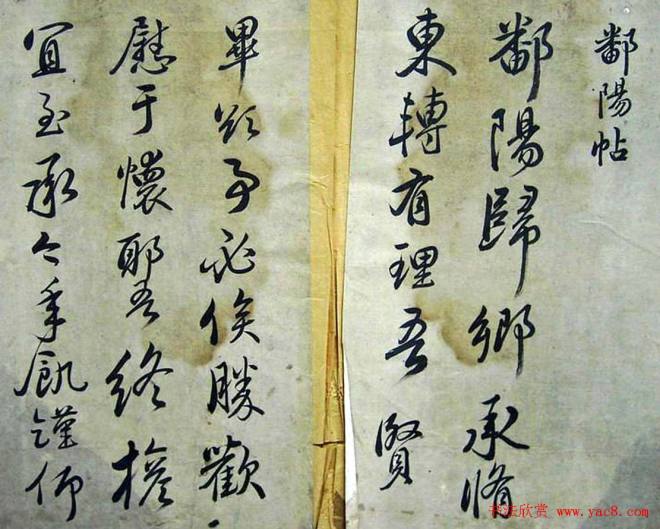 鄱陽帖
鄱陽歸鄉承脩
東轉有理吾賢
畢必俟勝歡
慰于懷耶吾終
宜至承今年飢饉仰
书法欣赏 www.yac8.com